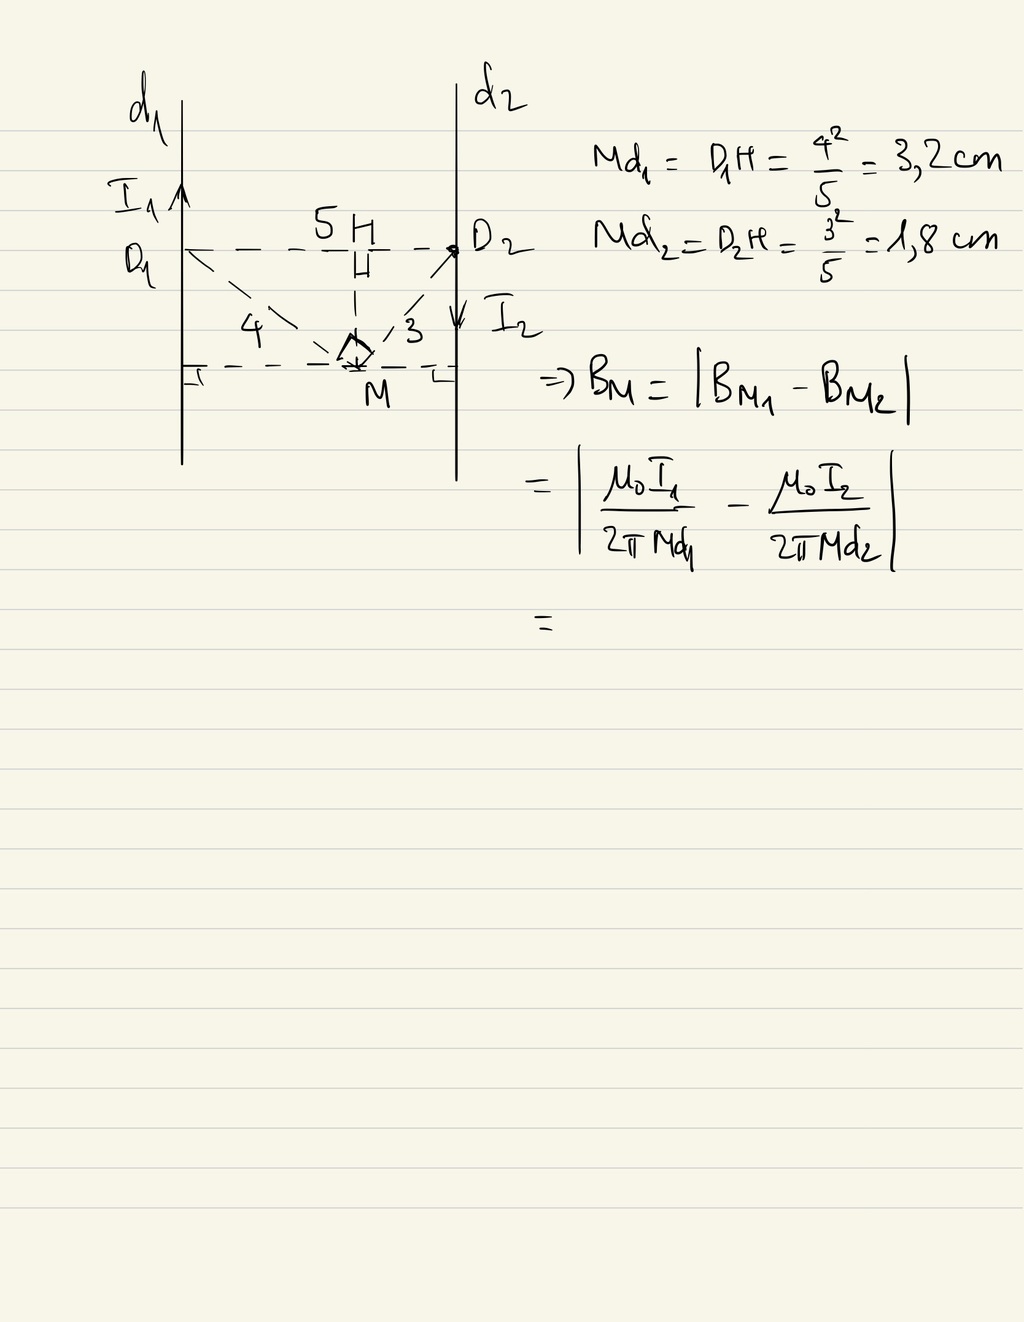 d₁
d₂
I₁
D₁
5
H
D₂
I₂
4
3
M
Md₁ = D₁H = 4²/5 = 3,2 cm
Md₂ = D₂H = 3²/5 = 1,8 cm
=> B_M = |B_M₁ - B_M₂|
= | μ₀I₁/2π Md₁ - μ₀I₂/2π Md₂ |
=